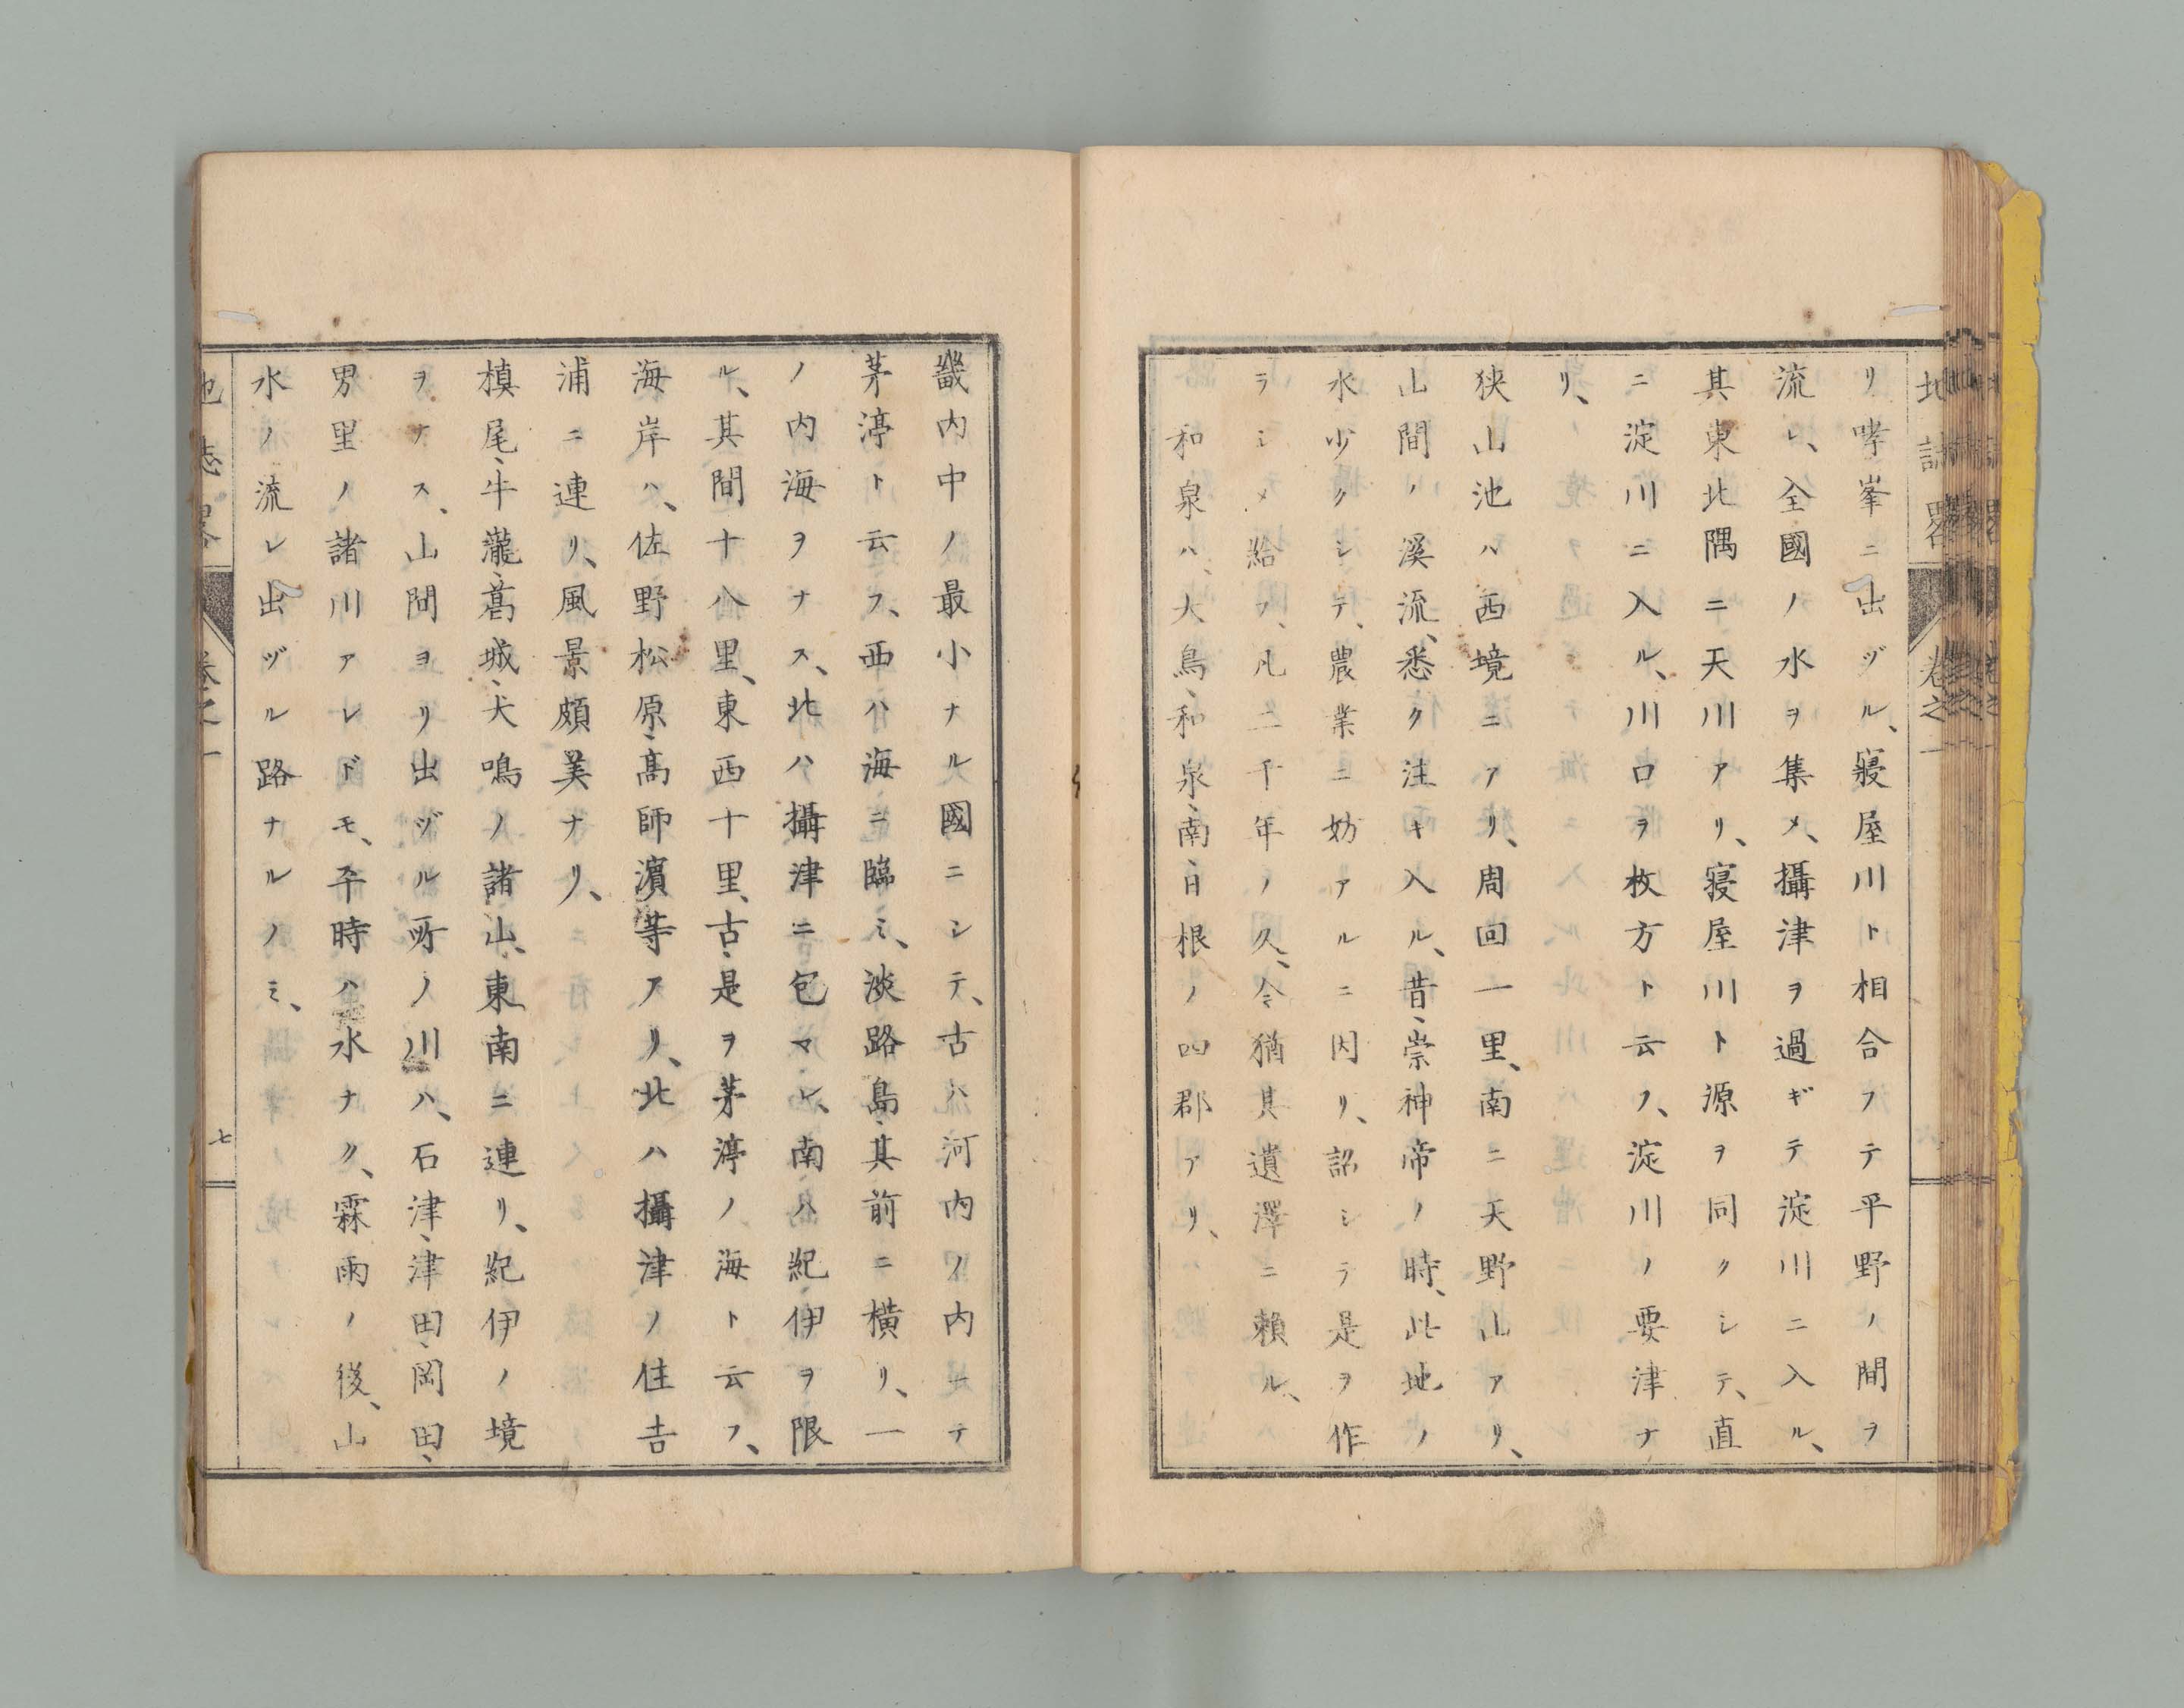 地誌畧 卷之一
リ哮峯ニ出ヅル、寢屋川ト相合フテ平野ノ間ヲ
流レ、全國ノ水ヲ集メ、攝津ヲ過ギテ淀川ニ入ル、
其東北隅ニ天川アリ、寢屋川ト源ヲ同クシテ、直
ニ淀川ニ入ル、川口ヲ枚方ト云フ、淀川ノ要津ナ
リ、
狹山池ハ西境ニアリ、周回一里、南ニ天野山アリ、
山間ノ溪流、悉ク注キ入ル、昔、崇神帝ノ時、此地ノ
水少クシテ、農業ニ妨アルニ因リ、詔シテ是ヲ作
ラシメ給フ、凡二千年ノ久、今猶其遺澤ニ賴ル、
和泉ハ、大鳥、和泉、南、日根ノ四郡アリ、
畿内中ノ最小ナル國ニシテ、古ハ河内ノ内ニテ
茅渟ト云フ、西ハ海ニ臨ミ、淡路島、其前ニ橫リ、一
ノ内海ヲナス、北ハ攝津ニ包マレ、南ハ紀伊ヲ限
ル、其間十八里、東西十里、古、是ヲ茅渟ノ海ト云フ、
海岸ハ、佐野松原、高師濱等アリ、北ハ攝津ノ住吉
浦ニ連リ、風景頗美ナリ、
槙尾、牛瀧、葛城、犬鳴ノ諸山、東南ニ連リ、紀伊ノ境
ヲナス、山間ヨリ出ヅル所ノ川ハ、石津、津田、岡田、
男里ノ諸川アレドモ、平時ハ水ナク、霖雨ノ後、山
水ノ流レ出ヅル路ナルノミ、
地志畧 卷之一 七